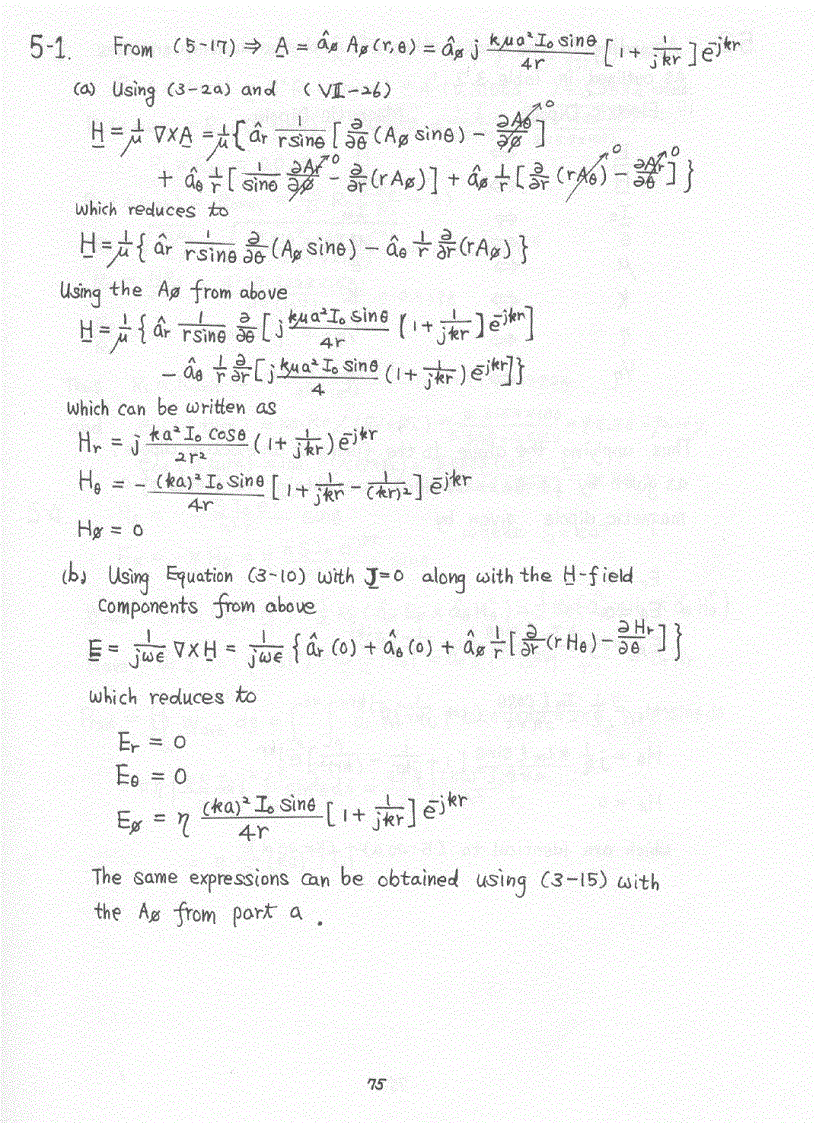 5-1. From (5-17) ⇒ A̲ = â_ø A_ø(r,θ) = â_ø j kμa²I₀ sinθ / 4r [1 + 1/jkr] e^-jkr
(a) Using (3-2a) and (VII-26)
H̲ = 1/μ ∇×A̲ = 1/μ { â_r 1/(r sinθ) [ ∂/∂θ (A_ø sinθ) - ∂A_θ/∂ø →0 ]
+ â_θ 1/r [ 1/sinθ ∂A_r/∂ø →0 - ∂/∂r (rA_ø) ] + â_ø 1/r [ ∂/∂r (rA_θ) →0 - ∂A_r/∂θ →0 ] }
which reduces to
H̲ = 1/μ { â_r 1/(r sinθ) ∂/∂θ (A_ø sinθ) - â_θ 1/r ∂/∂r (rA_ø) }
Using the A_ø from above
H̲ = 1/μ { â_r 1/(r sinθ) ∂/∂θ [ j kμa²I₀ sinθ / 4r [1 + 1/jkr] e^-jkr ]
- â_θ 1/r ∂/∂r [ j kμa²I₀ sinθ / 4 (1 + 1/jkr) e^-jkr ] }
which can be written as
H_r = j ka²I₀ cosθ / 2r² (1 + 1/jkr) e^-jkr
H_θ = - (ka)² I₀ sinθ / 4r [1 + 1/jkr - 1/(kr)²] e^-jkr
H_ø = 0
(b) Using Equation (3-10) with J̲=0 along with the H̲-field
components from above
E̲ = 1/jωε ∇×H̲ = 1/jωε { â_r (0) + â_θ (0) + â_ø 1/r [ ∂/∂r (rH_θ) - ∂H_r/∂θ ] }
which reduces to
E_r = 0
E_θ = 0
E_ø = η (ka)² I₀ sinθ / 4r [1 + 1/jkr] e^-jkr
The same expressions can be obtained using (3-15) with
the A_ø from part a .
75